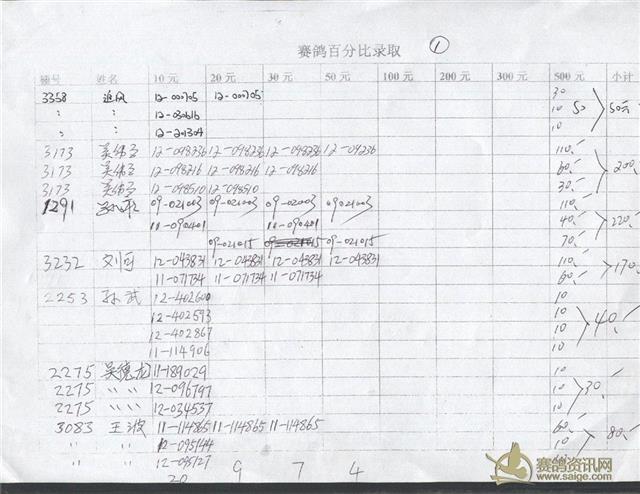 赛鸽百分比录取 ①
棚号 姓名 10元 20元 30元 50元 100元 200元 300元 500元 小计
3358 追风 12-000705 12-000705 30
〃 〃 12-030616 10 50 50元
〃 〃 12-201304 10
3173 12-098236 12-098236 12-098236 12-098236 110
3173 12-098216 12-098216 12-098216 60 200
3173 12-098510 12-098510 30
1291 09-021003 09-021003 09-021003 09021003 110
11-090401 11-090401 40 220
09-021015 09-021015 50-021015 70
3232 刘国 12-043831 12-043831 12-043831 12-043831 110
11-071734 11-071734 11-071734 60 170
2253 孙武 12-402600 10
12-402593 10
12-402867 10 40
11-114906 10
2275 吴德龙 11-189029 10
2275 〃 〃 12-096797 10 30
2275 〃 〃 12-034537 10
3083 王波 11-114865 11-114865 11-114865 60
〃 〃 12-095144 10 80
〃 〃 12-095127 10
20 9 7 4
赛鸽资讯网
www.saige.com